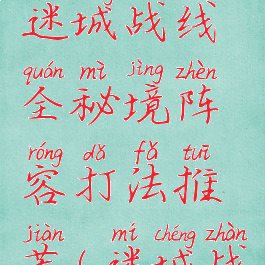 迷城战线
quán mì jìng zhèn
全秘境阵
róng dǎ fǎ tuī
容打法推
jiàn mí chéng zhàn
荐(迷城战